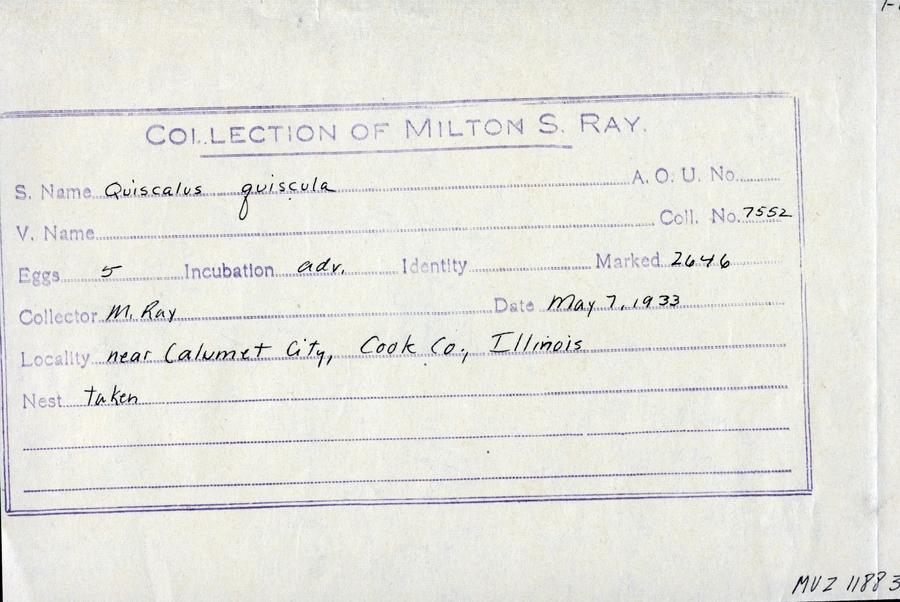 COLLECTION OF MILTON S. RAY.
S. Name Quiscalus quiscula A. O. U. No.
V. Name Coll. No. 7552
Eggs 5 Incubation adv. Identity Marked 2646
Collector M. Ray Date May 7, 1933
Locality near Calumet City, Cook Co., Illinois
Nest taken
MVZ 11883